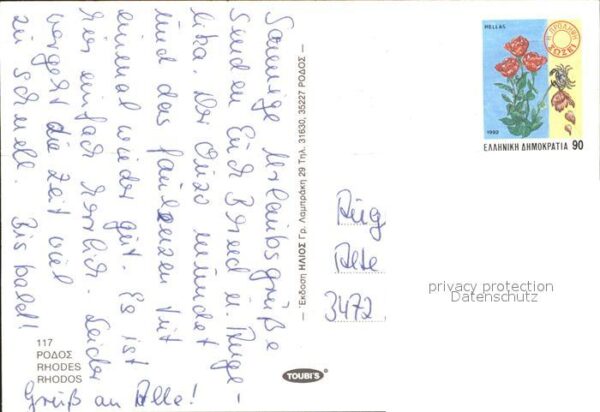 Sonnige Urlaubsgrüße
senden Euch Bernd u. Ange-
lika. Der Ouzo mundet
und das faulenzen tut
einmal wieder gut. Es ist
hier einfach herrlich. Leider
vergeht die Zeit viel
zu schnell. Bis bald!
Gruß an Alle!
117
ΡΟΔΟΣ
RHODES
RHODOS
— Έκδοση ΗΛΙΟΣ Γρ. Λαμπράκη 29 Τηλ. 31630, 35227 ΡΟΔΟΣ —
TOUBI'S
HELLAS
Η ΠΡΟΛΗΨΗ
ΣΩΖΕΙ
1992
ΕΛΛΗΝΙΚΗ ΔΗΜΟΚΡΑΤΙΑ 90
3472
privacy protection
Datenschutz